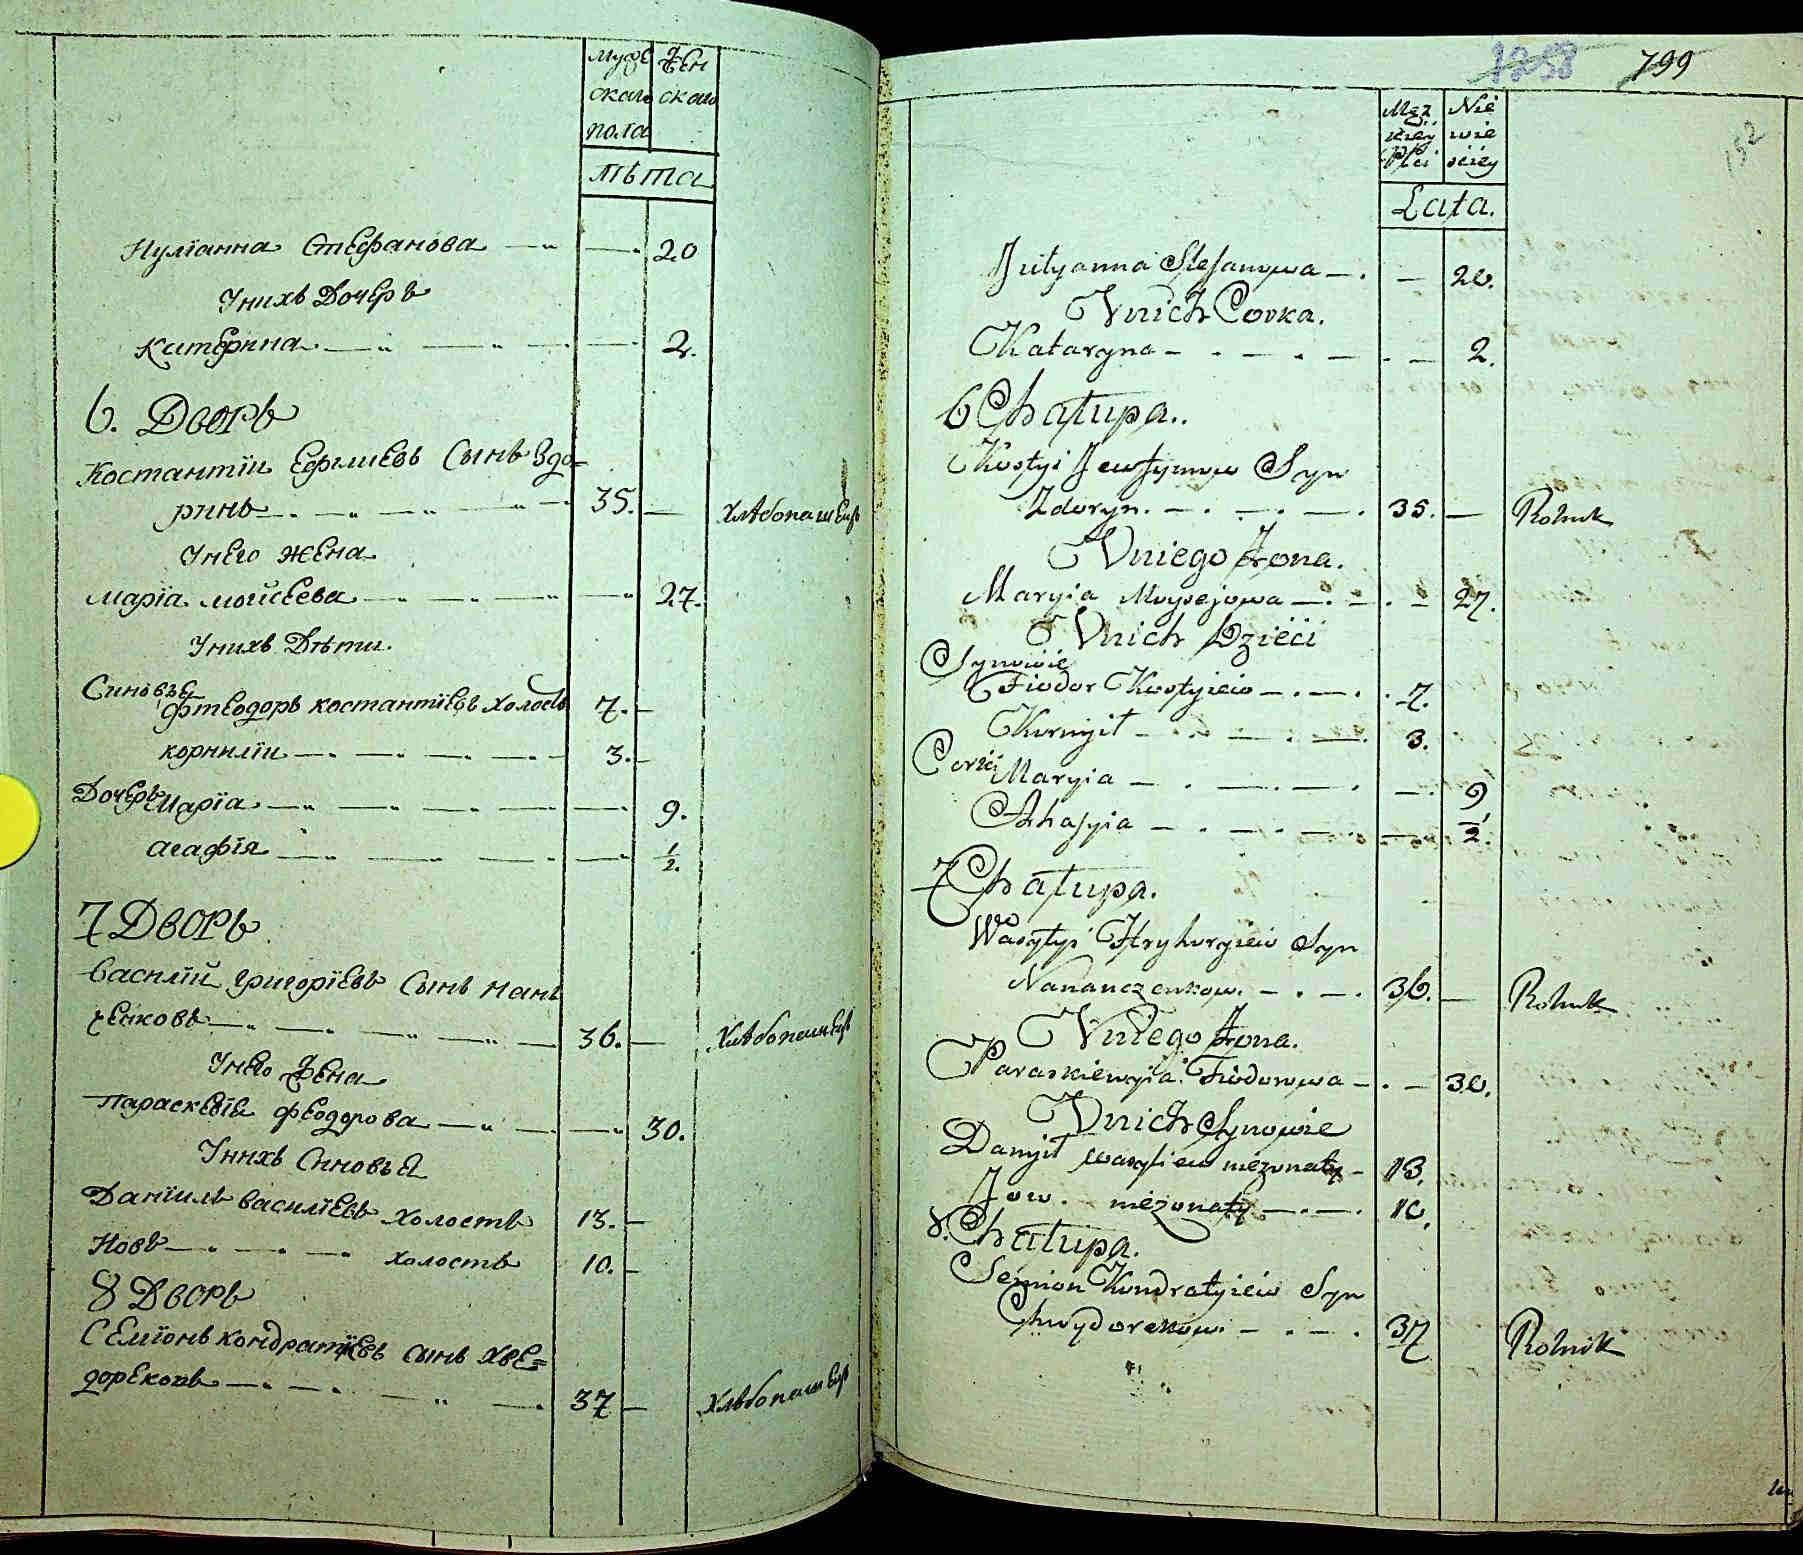 Муже Жен
скаго скаго
пола
лѣта
Иулїанна Стефанова 20
Унихъ Дочеръ
Катерина 2.
6. Дворъ
Костантїи Ефимїевъ Сынъ Здо=
ринъ 35. Хлѣбопашецъ
Унего жена
Марїа Мойсеева 27.
Унихъ Дѣти.
Синовъя
Фтеодоръ Костантїевъ Холостъ 7.
Корнилїи 3.
Дочеръ Марїа 9.
Агафїя 1/2.
7 Дворъ
Василїй Григорїевъ Сынъ Нань
ченковъ 36. Хлѣбопашецъ
Унего Жена
Параскевїя Феодорова 30.
Унихъ Синовья
Данїилъ Василїевъ Холостъ 13.
Иовъ Холостъ 10.
8 Дворъ
Семїонъ Кондратїевъ Сынъ Хве=
дорековъ 37 Хлѣбопашецъ
1258 799
152
Męz Nie
kiey wie
Płci sciey
Lata.
Julyanna Stefanowa 20.
Vnich Corka.
Kataryna 2.
6 Chałupa.
Kostyi Jewtymow Syn
Zdoryn. 35. Rolnik
Vniego Żona.
Maryia Moysejowa 27.
Vnich Dzieci
Synowie
Fiodor Kostyiew 7.
Kornyił 3.
Corki Maryia 9
Ahafyia 1/2.
7 Chałupa.
Wasylyi Hryhoryiew Syn
Nananczenkow. 36. Rolnik
Vniego Żona.
Paraskiewyia Fiodorowa 30.
Vnich Synowie
Danyił Wasyliew niezonaty 13.
Jow. niezonaty 10.
8. Chałupa.
Semion Kondratyiew Syn
Chwydorekow. 37 Rolnik